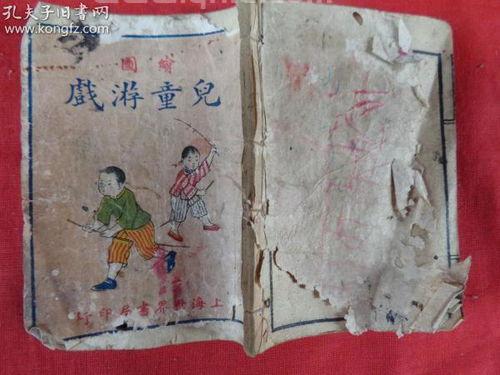 孔夫子旧书网
www.kongfz.com
繪圖
兒童游戲
上海世界書局印行